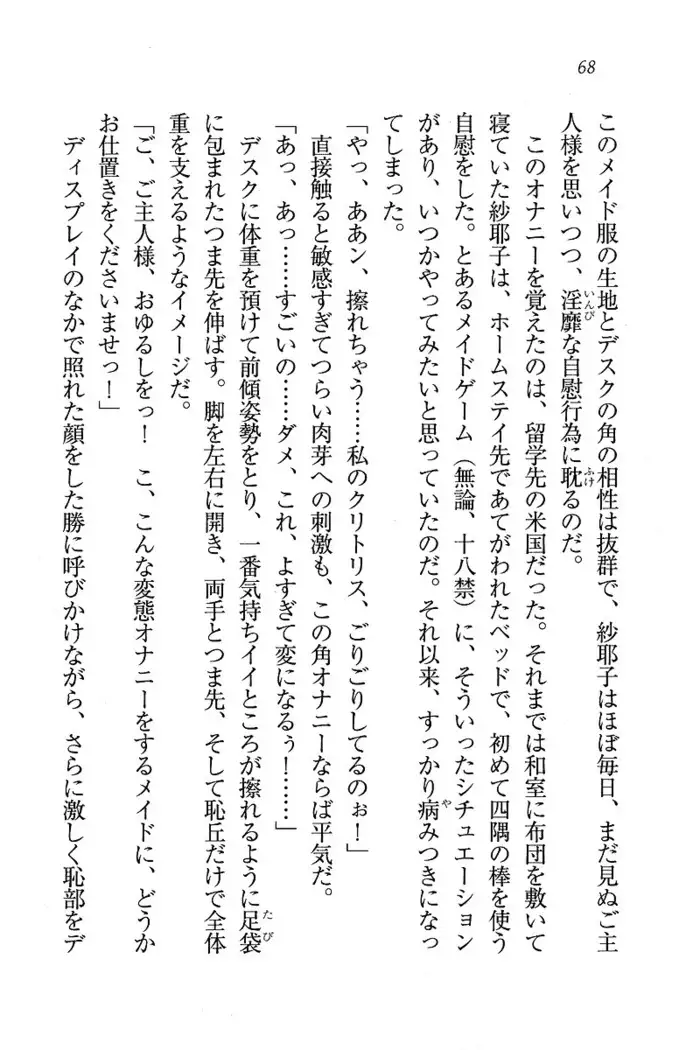 68
このメイド服の生地とデスクの角の相性は抜群で、紗耶子はほぼ毎日、まだ見ぬご主
人様を思いつつ、淫靡な自慰行為に耽るのだ。
このオナニーを覚えたのは、留学先の米国だった。それまでは和室に布団を敷いて
寝ていた紗耶子は、ホームステイ先であてがわれたベッドで、初めて四隅の棒を使う
自慰をした。とあるメイドゲーム（無論、十八禁）に、そういったシチュエーション
があり、いつかやってみたいと思っていたのだ。それ以来、すっかり病みつきになっ
てしまった。
「やっ、ああン、擦れちゃう……私のクリトリス、ごりごりしてるのぉ！」
直接触ると敏感すぎてつらい肉芽への刺激も、この角オナニーならば平気だ。
「あっ、あっ……すごいの……ダメ、これ、よすぎて変になるぅ！……」
デスクに体重を預けて前傾姿勢をとり、一番気持ちイイところが擦れるように足袋
に包まれたつま先を伸ばす。脚を左右に開き、両手とつま先、そして恥丘だけで全体
重を支えるようなイメージだ。
「ご、ご主人様、おゆるしをっ！　こ、こんな変態オナニーをするメイドに、どうか
お仕置きをくださいませっ！」
ディスプレイのなかで照れた顔をした勝に呼びかけながら、さらに激しく恥部をデ